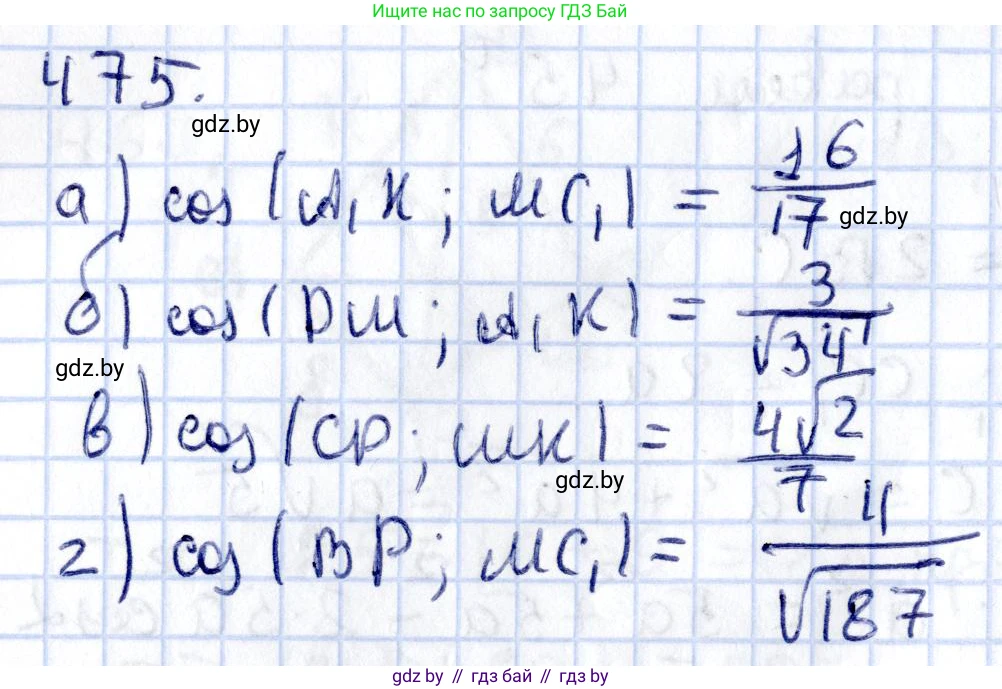 Ищите нас по запросу ГДЗ Бай
475.
gdz.by
а) cos (A₁K; MC₁) = 16/17
gdz.by
б) cos (DM; A₁K) = 3/√34
gdz.by
в) cos (CP; MK) = 4√2/7
gdz.by
г) cos (BP; MC₁) = 4/√187
gdz.by // гдз бай // гдз by